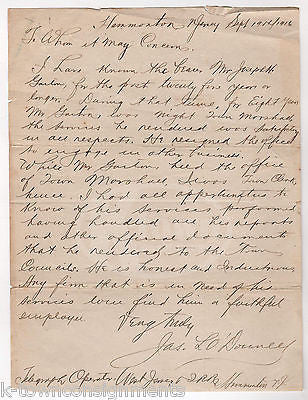 Hammonton N Jersey Sept 19th/1916
To Whom it May Concern.
I have Known the bearer Mr Joseph H
Garton, for the past twenty five years or
longer, During that time, for Eight years
Mr Garton was Night Town Marshall
the Services he rendered was Satisfactory
in all respects. He resigned the office
to Engage in other business.
While Mr Garton held the office
of Town Marshall I was Town Clerk
hence I had all opportunities to
Know of his Services performed
having handled all his reports
and other official documents
that he rendered to the Town
Councils. He is honest and Industrious
Any firm that is in need of his
services will find him a faithful
employee
Very truly
Jas. L. O'Donnell
Telegraph Operator West Jersey & S.R.R. Hammonton NJ
k-townconsignments on EBAY